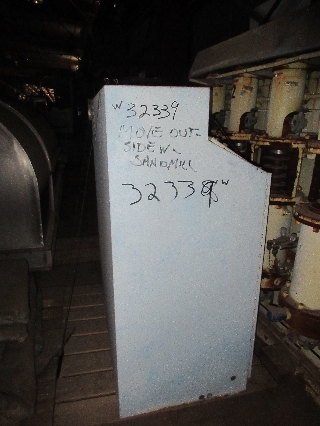 W32339
MOVE OUT-
SIDE W-
SANDMILL
32338 W